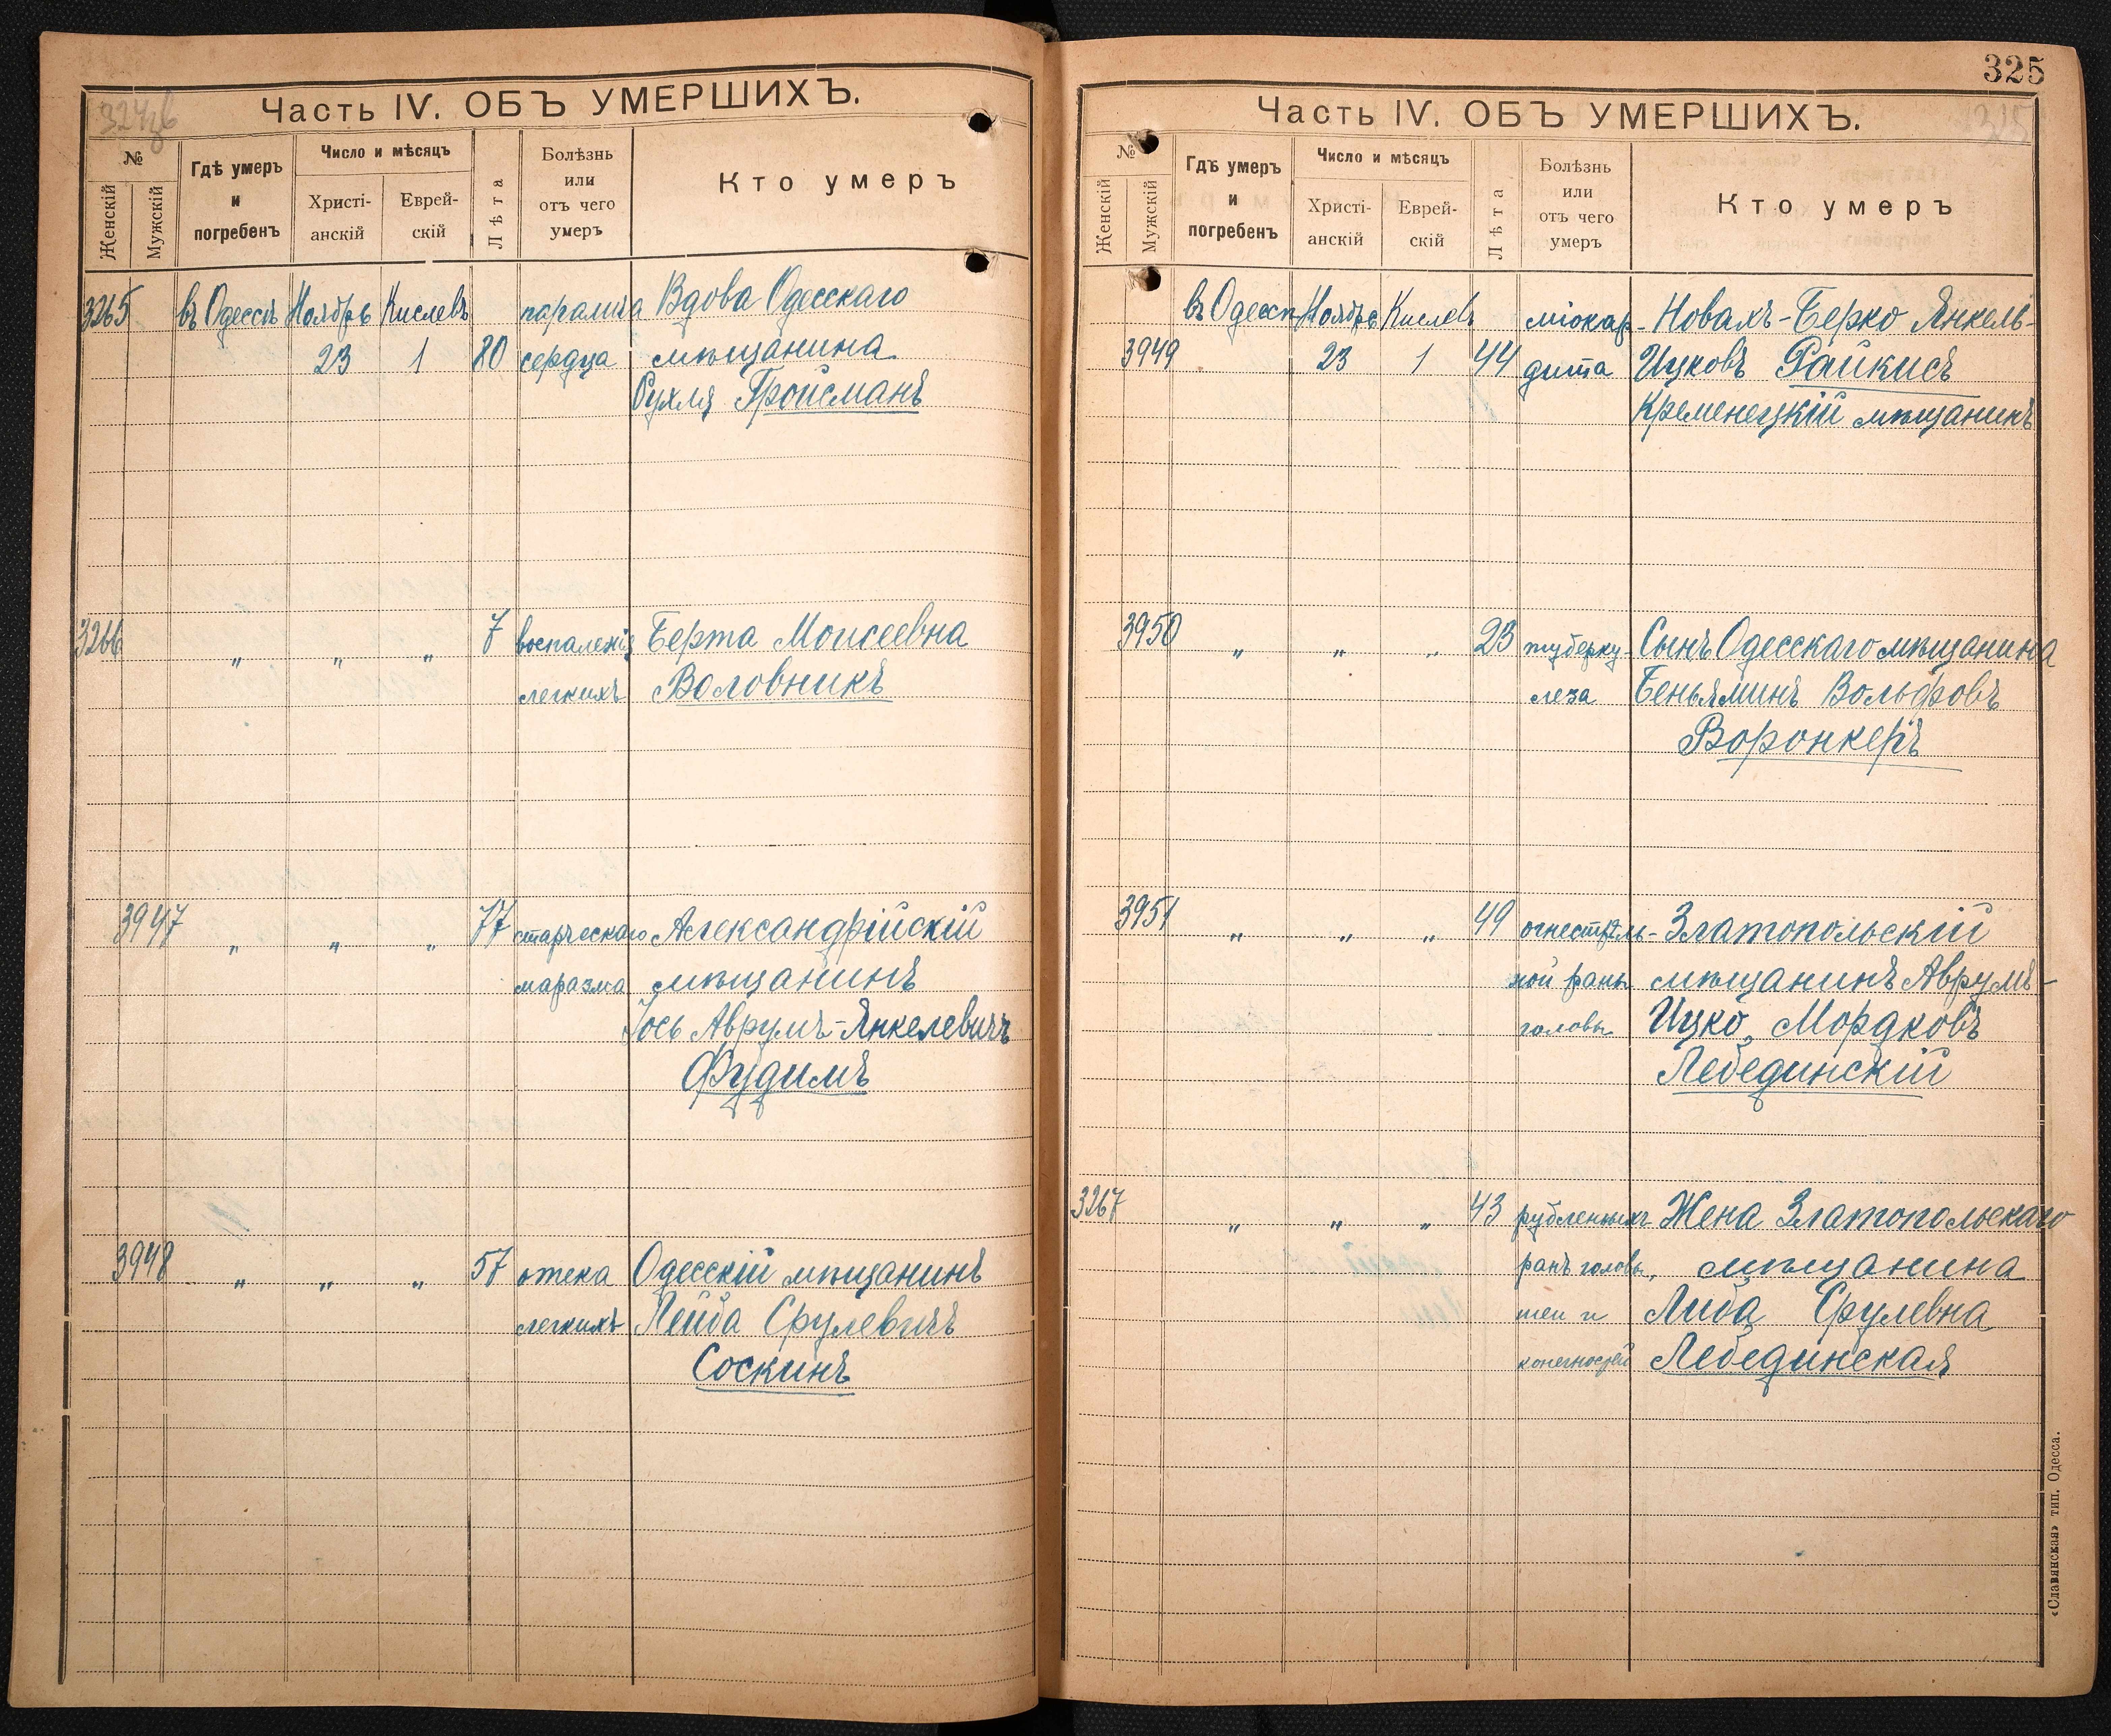 324об
Часть IV. ОБЪ УМЕРШИХЪ.
№
Женскій
Мужскій
Гдѣ умеръ
и
погребенъ
Число и мѣсяцъ
Христі-
анскій
Еврей-
скій
Лѣта
Болѣзнь
или
отъ чего
умеръ
Кто умеръ
3265 въ Одессѣ Ноябрь Кислевъ паралича Вдова Одесскаго
23 1 80 сердца мѣщанина
Рухля Гройсманъ
3266 „ „ „ 7 воспаленія Берта Моисеевна
легкихъ Воловникъ
3947 „ „ „ 77 старческаго Александрійскій
маразма мѣщанинъ
Іось Аврумъ-Янкелевичъ
Фудимъ
3948 „ „ „ 57 отека Одесскій мѣщанинъ
легкихъ Лейба Срулевичъ
Соскинъ
325
325
Часть IV. ОБЪ УМЕРШИХЪ.
№
Женскій
Мужскій
Гдѣ умеръ
и
погребенъ
Число и мѣсяцъ
Христі-
анскій
Еврей-
скій
Лѣта
Болѣзнь
или
отъ чего
умеръ
Кто умеръ
въ Одессѣ Ноябрь Кислевъ міокар- Новахъ-Берко Янкель-
3949 23 1 44 дита Ицковъ Райкисъ
Кременецкій мѣщанинъ
3950 „ „ „ 23 туберку- Сынъ Одесскаго мѣщанина
леза Беньяминъ Вольфовъ
Воронкеръ
3951 „ „ „ 49 огнестрѣль- Златопольскій
ной раны мѣщанинъ Аврумъ-
головы Ицко Мордковъ
Лебединскій
3267 „ „ „ 43 рубленныхъ Жена Златопольскаго
ранъ головы, мѣщанина
шеи и Либа Срулевна
конечностей Лебединская
«Славянская» тип. Одесса.